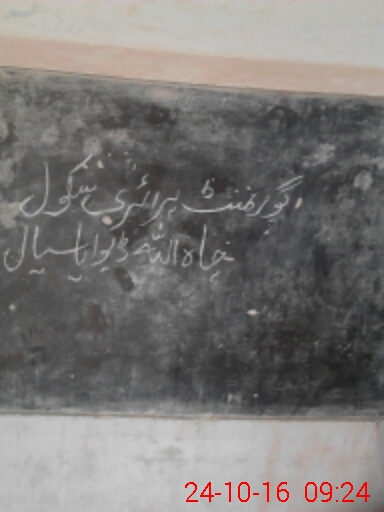 گورنمنٹ پرائمری سکول
چاہ اللہ ڈیوایا سیال
24-10-16 09:24